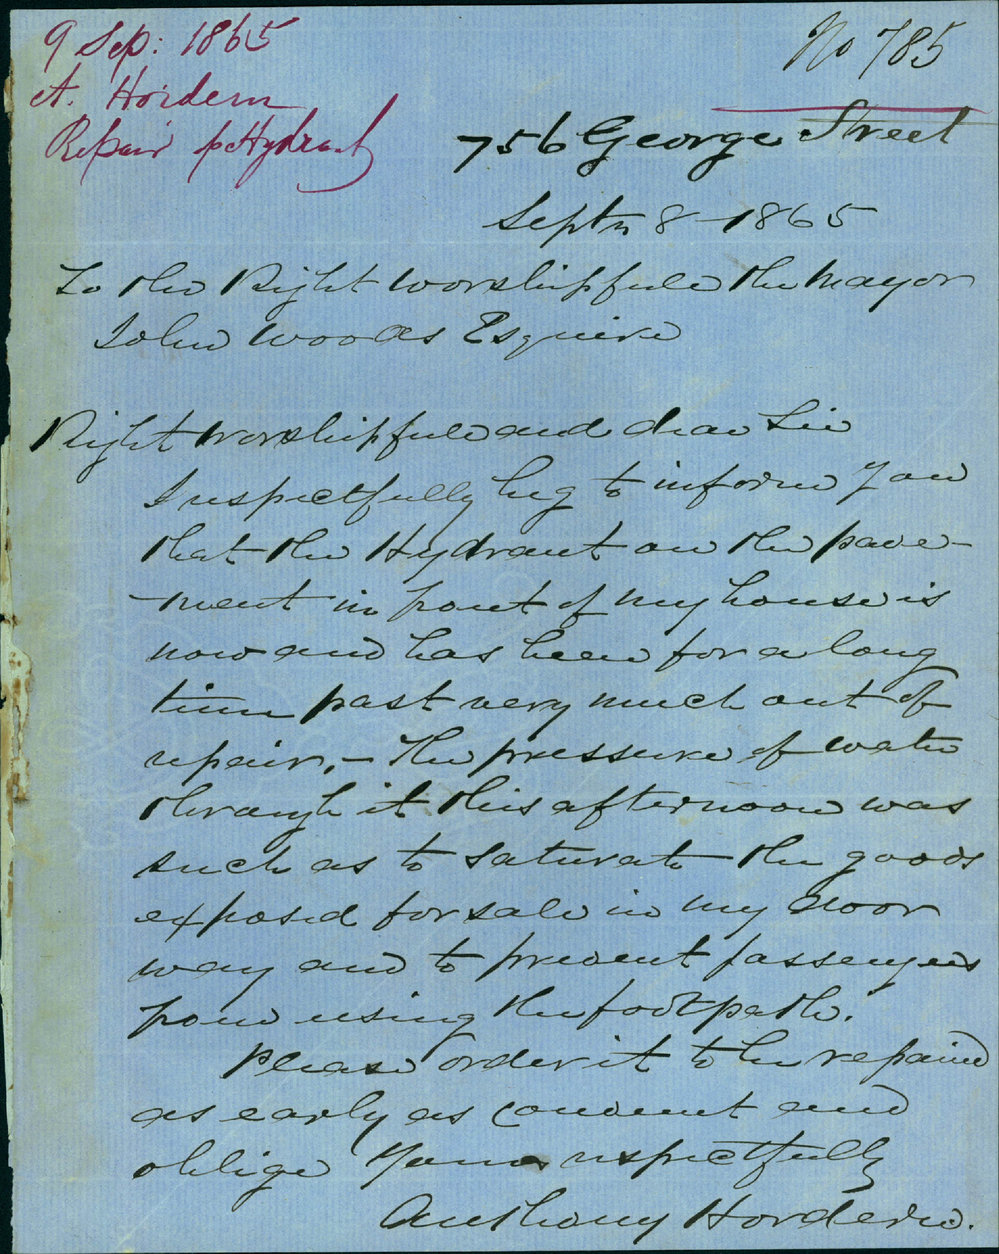 9 Sep: 1865
A. Hordern
Repair Hydrant
No 785
756 George Street
Septr 8 1865
To the Right Worshipfull the Mayor
John Woods Esquire
Right Worshipfull and dear Sir
I respectfully beg to inform you
that the Hydrant on the pave-
-ment in front of my house is
now and has been for a long
time past very much out of
repair, - The pressure of water
through it this afternoon was
such as to saturate the goods
exposed for sale in my door
way and to prevent passengers
from using the footpath.
Please order it to be repaired
as early as convenient and
oblige Yours respectfully
Anthony Hordern.